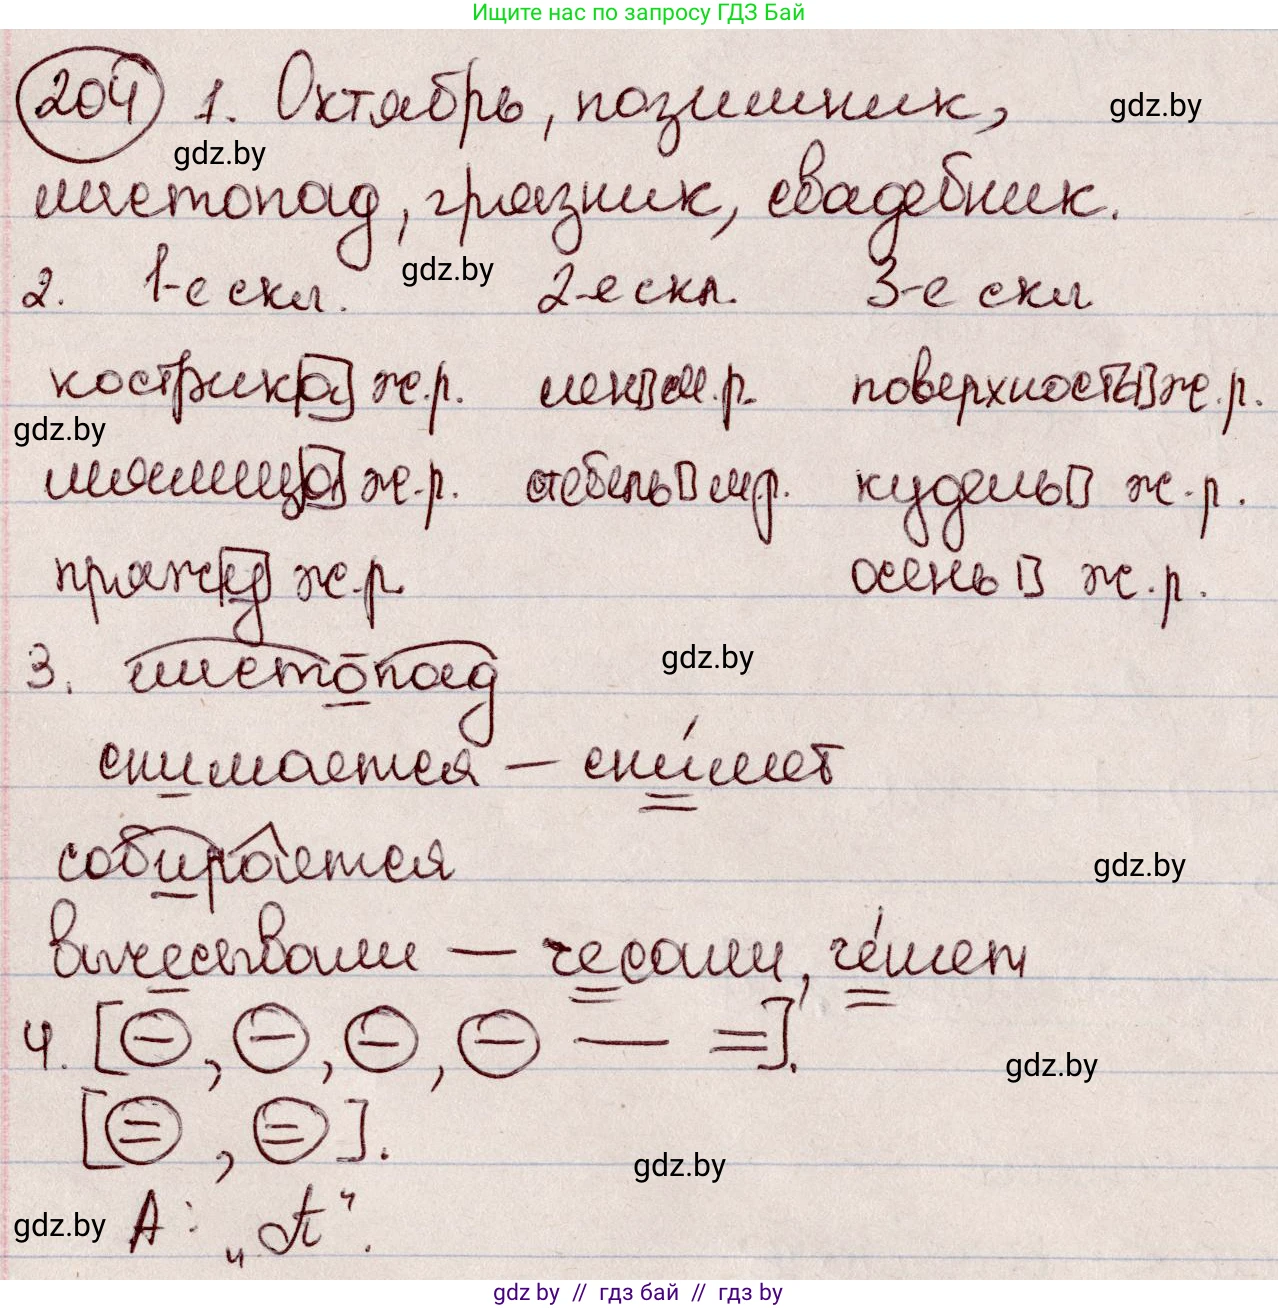 Ищите нас по запросу ГДЗ Бай
204 1. Октябрь, позимник, gdz.by
gdz.by
листопад, грязник, свадебник.
gdz.by
2. 1-е скл. 2-е скл. 3-е скл
кострика ж.р. лен м.р. поверхность ж.р.
gdz.by
мялица ж.р. стебель м.р. кудель ж.р.
пряжа ж.р. осень ж.р.
3. листопад gdz.by
снимается — сни́мет
собирается gdz.by
вычесывали — чесали, че́шет
4. [ – , – , – , – — = ]. gdz.by
[ = , = ]. gdz.by
gdz.by А: „А“.
gdz by // гдз бай // гдз by